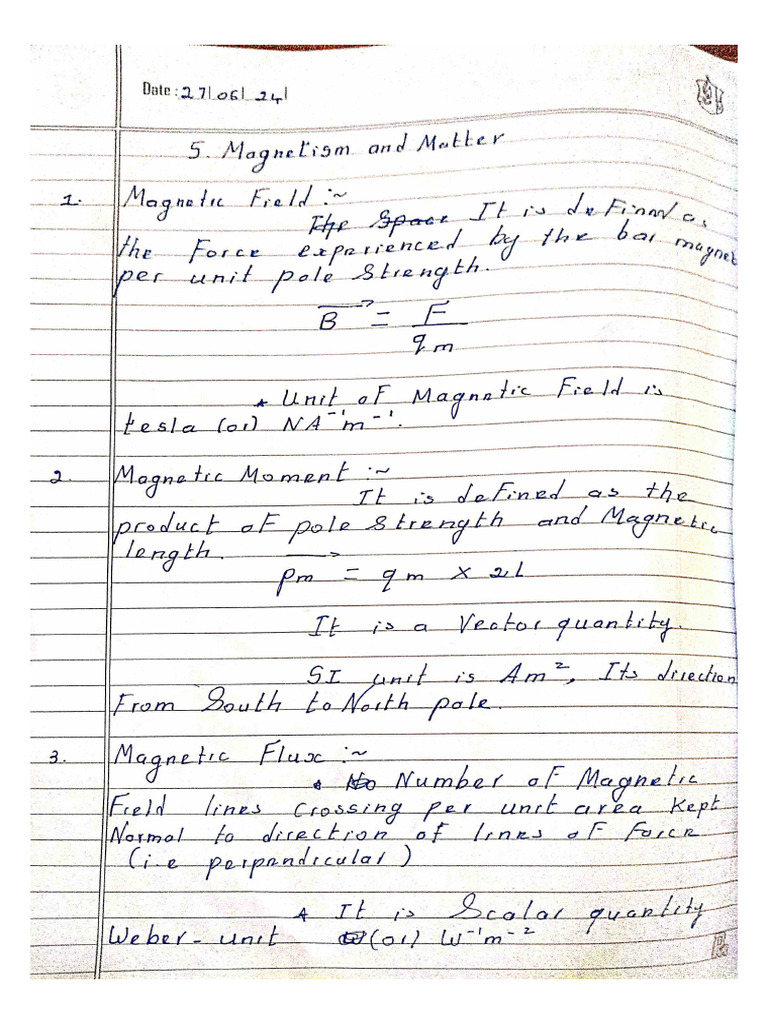 Date : 27/06/24/
5. Magnetism and Matter
1. Magnetic Field :~
The Space It is defined as
the Force experienced by the bar magnet
per unit pole Strength.
B = F
qm
* Unit of Magnetic Field is
tesla (or) NA⁻¹m⁻¹.
2. Magnetic Moment :~
It is defined as the
product of pole Strength and Magnetic
length.
pm = qm × 2l
It is a Vector quantity.
SI unit is Am², Its direction
From South to North pole.
3. Magnetic Flux :~
* No Number of Magnetic
Field lines Crossing per unit area Kept
Normal to direction of lines of Force
(i.e perpendicular)
* It is Scalar quantity
Weber - unit (or) W⁻¹m⁻²